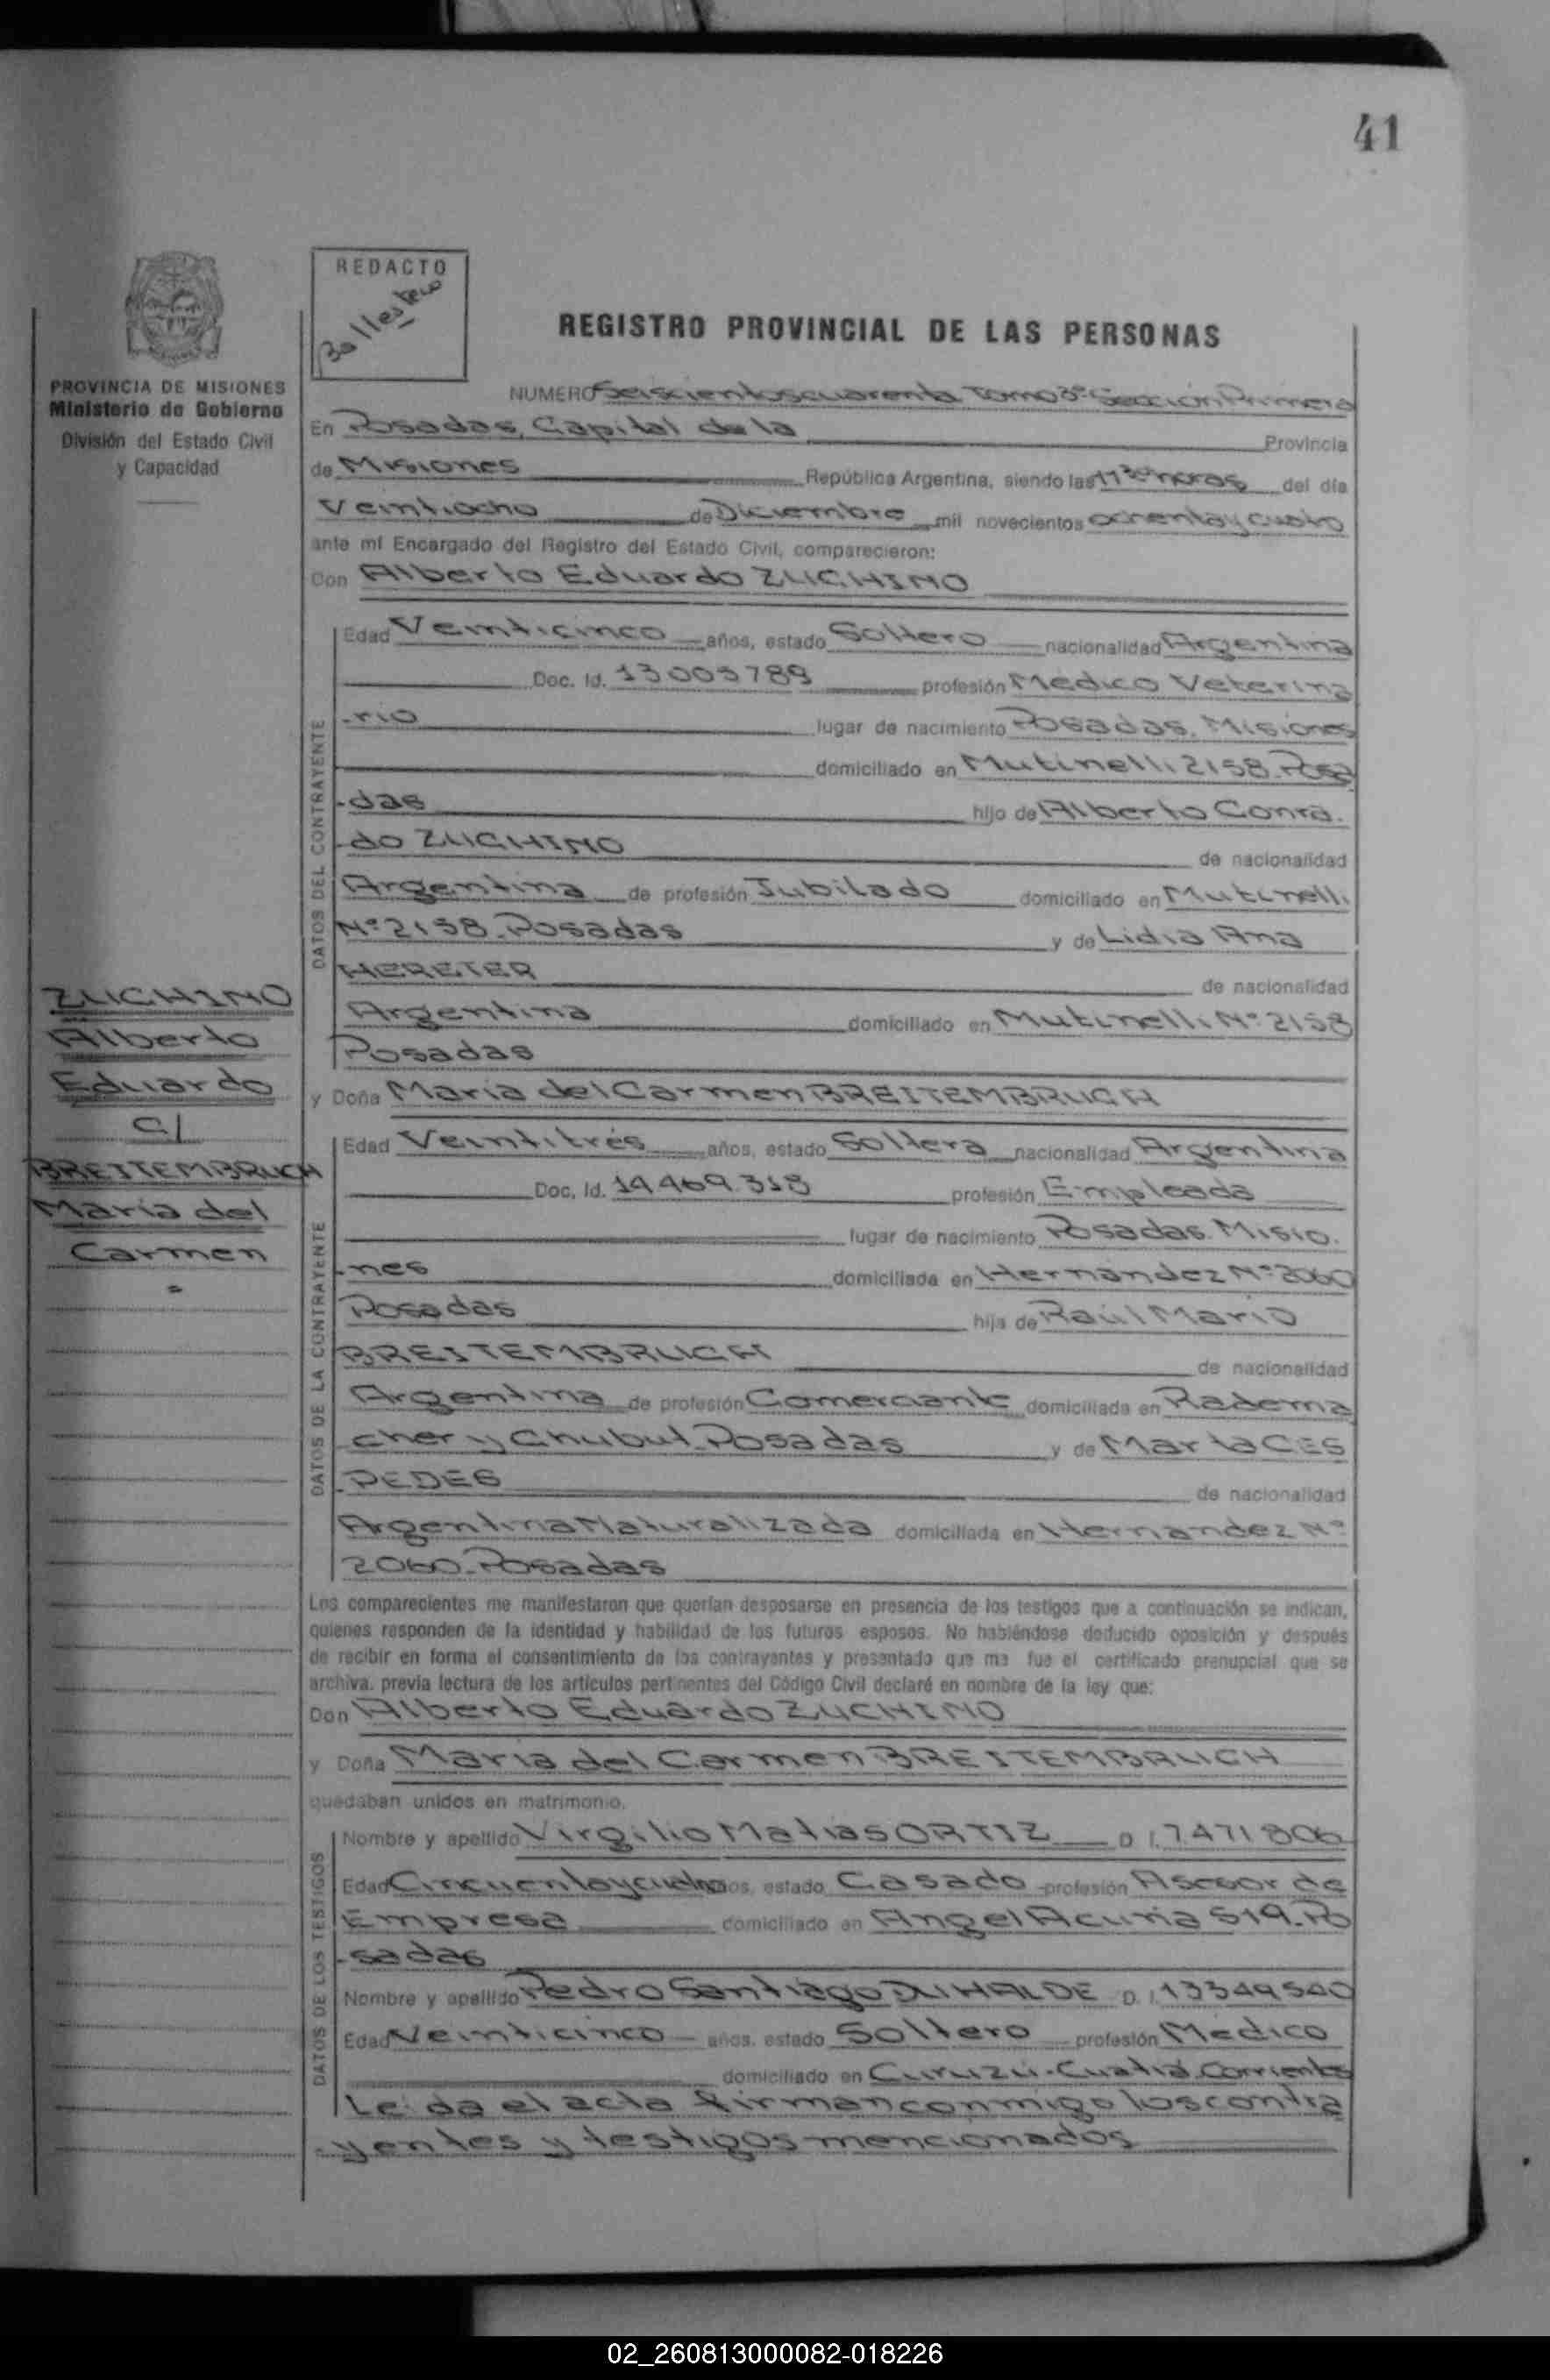 41
REDACTO
Ballestero
REGISTRO PROVINCIAL DE LAS PERSONAS
PROVINCIA DE MISIONES
Ministerio de Gobierno
División del Estado Civil
y Capacidad
NUMERO Seiscientos cuarenta Tomo 3º Sección Primera
En Posadas, Capital de la Provincia
de Misiones República Argentina, siendo las 11 30 horas del día
Veintiocho de Diciembre mil novecientos ochenta y cuatro
ante mí Encargado del Registro del Estado Civil, comparecieron:
Don Alberto Eduardo ZUCHINO
DATOS DEL CONTRAYENTE
Edad Veinticinco años, estado Soltero nacionalidad Argentina
Doc. Id. 13005789 profesión Médico Veterina
-rio lugar de nacimiento Posadas. Misiones
domiciliado en Mutinelli 2158. Posa
-das hijo de Alberto Conra.
do ZUCHINO de nacionalidad
Argentina de profesión Jubilado domiciliado en Mutinelli
Nº 2158. Posadas y de Lidia Ana
HERETER de nacionalidad
Argentina domiciliado en Mutinelli Nº 2158
Posadas
ZUCHINO
Alberto
Eduardo
C/
BREITEMBRUCH
María del
Carmen
=
y Doña María del Carmen BREITEMBRUCH
DATOS DE LA CONTRAYENTE
Edad Veintitrés años, estado Soltera nacionalidad Argentina
Doc. Id. 14.469.318 profesión Empleada
lugar de nacimiento Posadas. Misio.
-nes domiciliada en Hernández Nº 2060
Posadas hija de Raúl Mario
BREITEMBRUCH de nacionalidad
Argentina de profesión Comerciante domiciliada en Radema
cher y Chubut. Posadas y de Marta CES
-PEDES de nacionalidad
Argentina Naturalizada domiciliada en Hernandez Nº
2060. Posadas
Los comparecientes me manifestaron que querían desposarse en presencia de los testigos que a continuación se indican,
quienes responden de la identidad y habilidad de los futuros esposos. No habiéndose deducido oposición y después
de recibir en forma el consentimiento de los contrayentes y presentado que me fue el certificado prenupcial que se
archiva, previa lectura de los artículos pertinentes del Código Civil declaré en nombre de la ley que:
Don Alberto Eduardo ZUCHINO
y Doña María del Carmen BREITEMBRUCH
quedaban unidos en matrimonio.
DATOS DE LOS TESTIGOS
Nombre y apellido Virgilio Matias ORTIZ D.I. 7.471806
Edad Cincuenta y cuatro años, estado Casado profesión Asesor de
Empresa domiciliado en Angel Acuña 519. Po
-sadas
Nombre y apellido Pedro Santiago DUHALDE D.I. 13349540
Edad Veinticinco años, estado Soltero profesión Médico
domiciliado en Curuzú-Cuatiá. Corrientes
Leída el acta firman conmigo los contra
-yentes y testigos mencionados
02_260813000082-018226